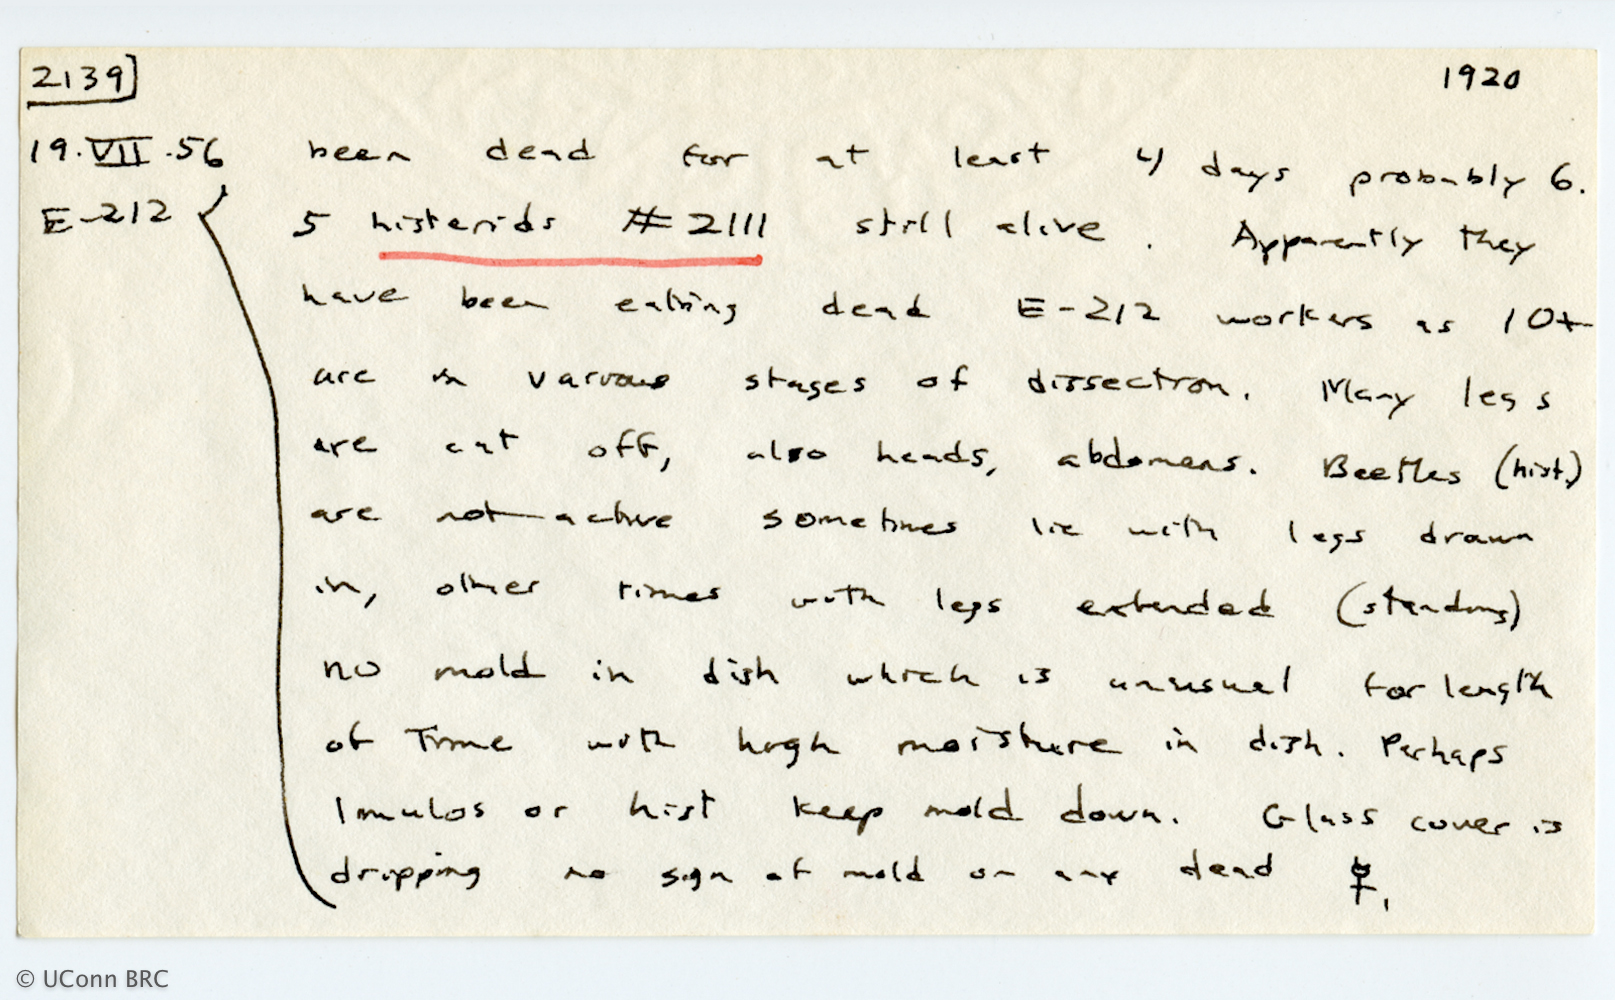 2139] 1920
19.VII.56 been dead for at least 4 days probably 6.
E-212 5 histerids #2111 still alive. Apparently they
have been eating dead E-212 workers as 10+
are in various stages of dissection. Many legs
are cut off, also heads, abdomens. Beetles (hist.)
are not active sometimes lie with legs drawn
in, other times with legs extended (standing)
no mold in dish which is unusual for length
of time with high moisture in dish. Perhaps
limulos or hist keep mold down. Glass cover is
dripping no sign of mold on any dead ☿.
© UConn BRC